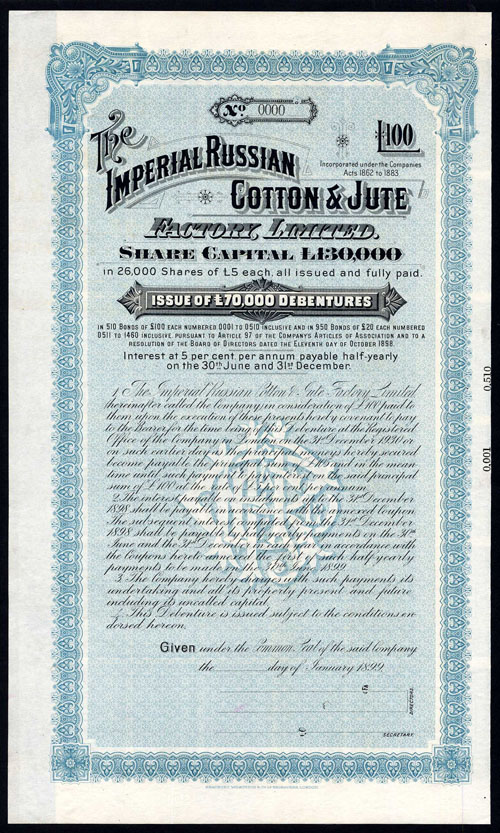 No. 0000
£100
The
Imperial Russian
Incorporated under the Companies
Acts 1862 to 1883
Cotton & Jute
Factory, Limited.
Share Capital £130,000
in 26,000 Shares of £5 each, all issued and fully paid.
Issue of £70,000 Debentures
in 510 Bonds of £100 each numbered 0001 to 0510 inclusive and in 950 Bonds of £20 each numbered
0511 to 1460 inclusive, pursuant to Article 97 of the Company's Articles of Association and to a
Resolution of the Board of Directors dated the Eleventh day of October 1898.
Interest at 5 per cent. per annum payable half-yearly
on the 30th June and 31st December.
1. The Imperial Russian Cotton & Jute Factory Limited
(hereinafter called the Company) in consideration of £100 paid to
them upon the execution of these presents hereby covenant to pay
to the Bearer for the time being of this Debenture at the Registered
Office of the Company in London on the 31st December 1930 or on
such earlier day as the principal moneys hereby secured
become payable the principal sum of £100 and in the mean
time until such payment to pay interest on the said principal
sum of £100 at the rate of 5 per cent per annum.
2. The interest payable on instalments up to the 31st December
1898 shall be payable in accordance with the annexed Coupon
The subsequent interest computed from the 31st December
1898 shall be payable by half-yearly payments on the 30th
June and the 31st December in each year in accordance with
the Coupons hereto annexed the first of such half-yearly
payments to be made the 30th June 1899
3. The Company hereby charges with such payments its
undertaking and all its property present and future
including its uncalled capital.
This Debenture is issued subject to the conditions en-
dorsed hereon.
Given under the Common Seal of the said Company
the day of January 1899.
DIRECTORS.
SECRETARY.
0,001 0,510